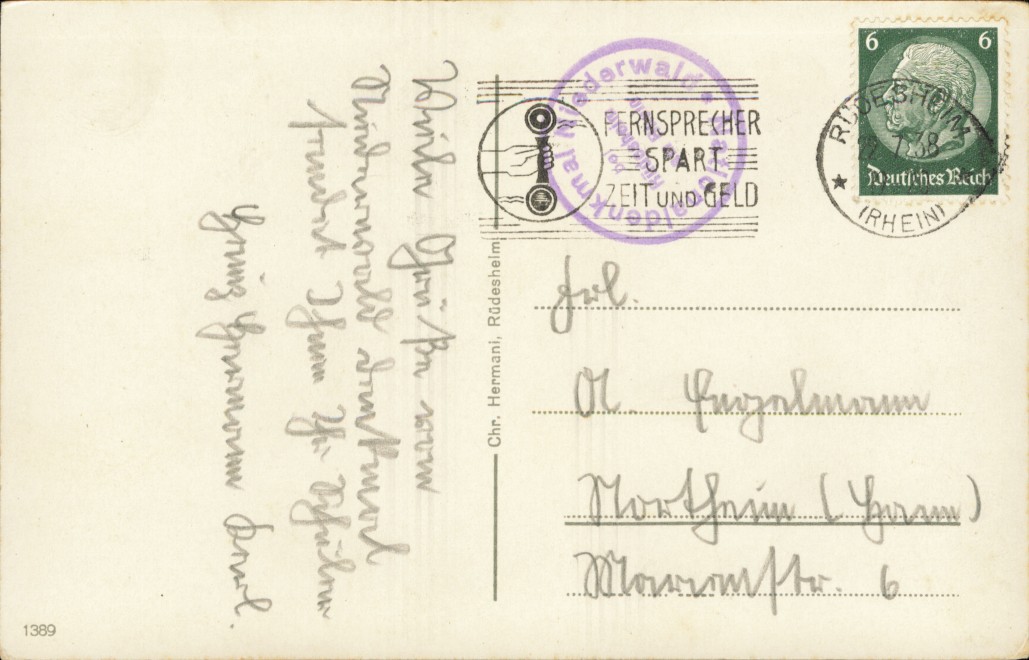 Viele Grüße vom
Niederwalddenkmal
sendet Ihnen Ihr Schüler
Heinz Hermann
Chr. Hermani, Rüdesheim
1389
Niederwald
Nationaldenkmal
FERNSPRECHER
SPART
ZEIT UND GELD
6 6
Deutsches Reich
RÜDESHEIM
38
(RHEIN)
Frl.
A. Engelmann
Northeim (Hann)
Marienstr. 6